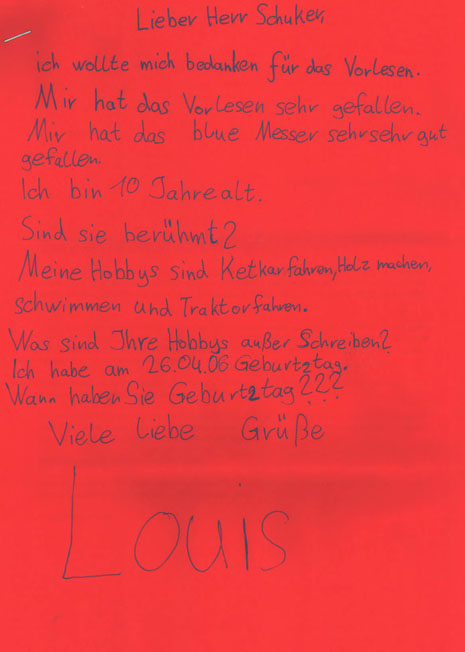 Lieber Herr Schuker,
ich wollte mich bedanken für das Vorlesen.
Mir hat das Vorlesen sehr gefallen.
Mir hat das blue Messer sehrsehr gut
gefallen.
Ich bin 10 Jahre alt.
Sind sie berühmt?
Meine Hobbys sind Ketkarfahren, Holz machen,
schwimmen und Traktorfahren.
Was sind Ihre Hobbys außer Schreiben?
Ich habe am 26.04.06 Geburtztag.
Wann haben Sie Geburtztag???
Viele liebe Grüße
Louis